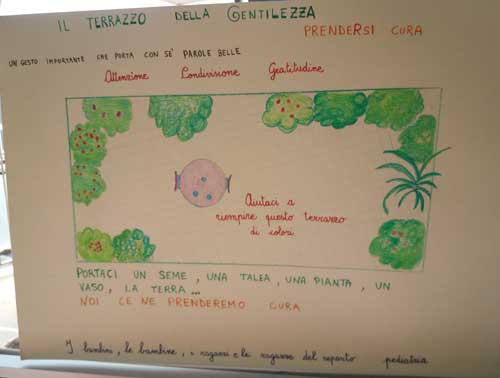 IL TERRAZZO DELLA GENTILEZZA
PRENDERSI CURA
UN GESTO IMPORTANTE CHE PORTA CON SE' PAROLE BELLE
Attenzione Condivisione Gratitudine
Aiutaci a
riempire questo terrazzo
di colori
PORTACI UN SEME, UNA TALEA, UNA PIANTA, UN
VASO, LA TERRA...
NOI CE NE PRENDEREMO CURA
I bambini, le bambine, i ragazzi e le ragazze del reparto pediatria